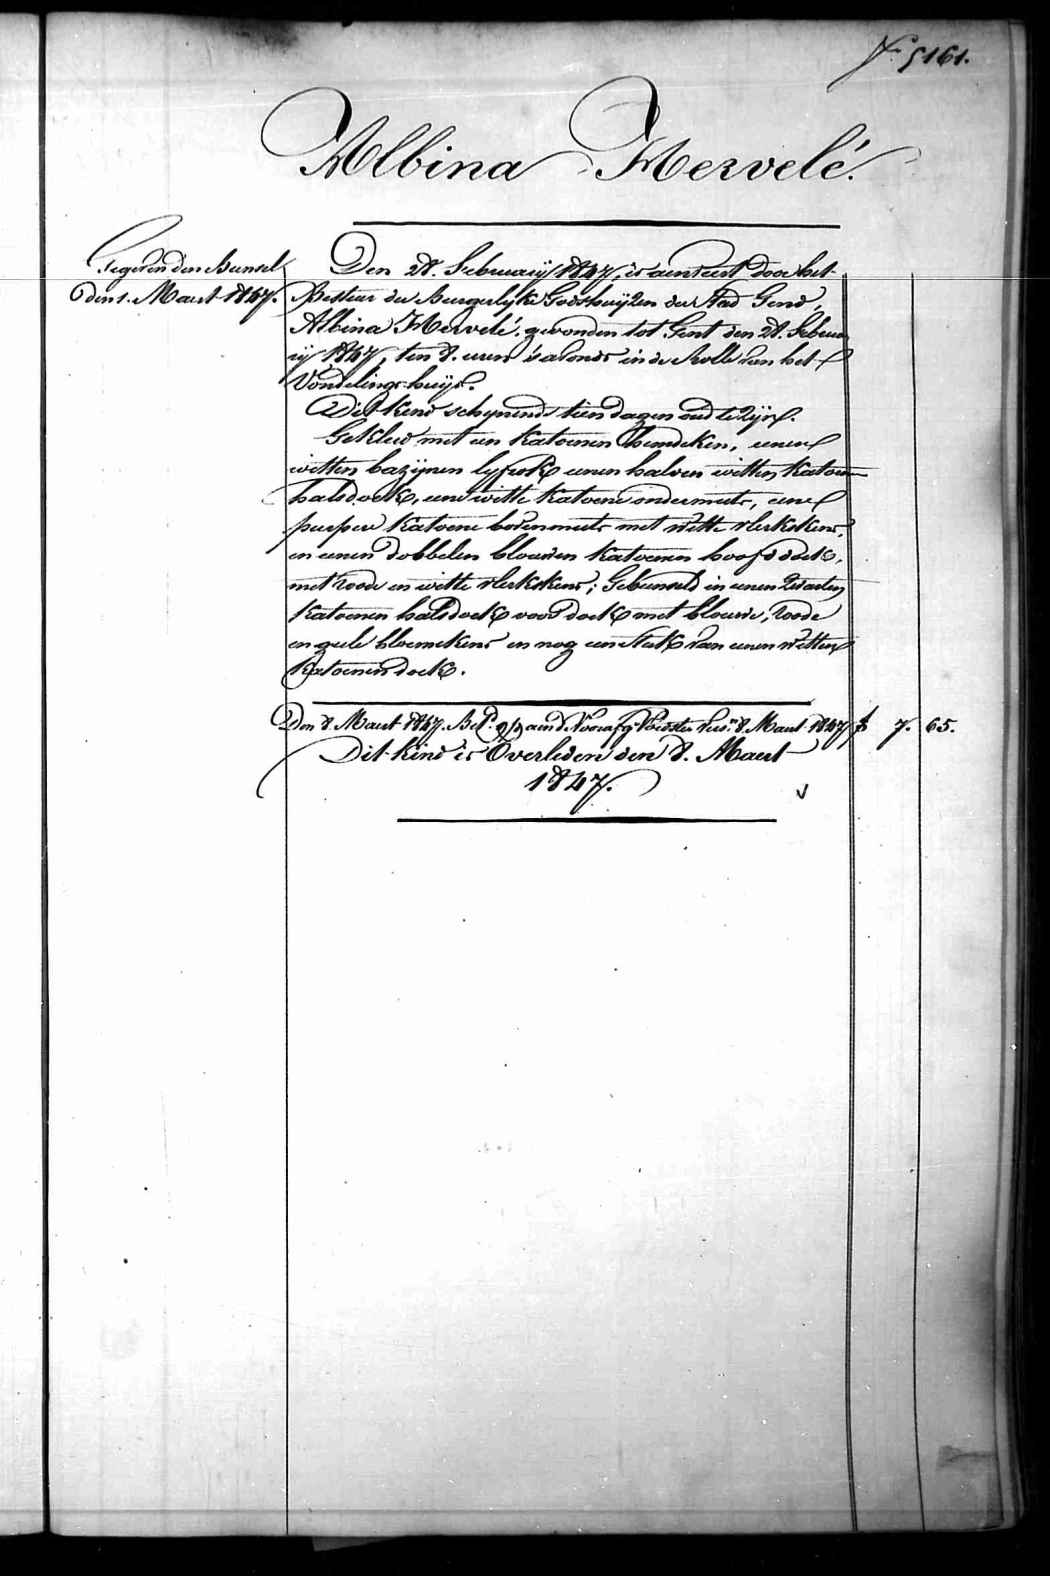 N.° 5161.
Albina Hervelé.
Gegeven den Bunsel
den 1. Maert 1847.
Den 28. February 1847, is aenveert door het
Bestier der Burgerlyke Godshuyzen der Stad Gend,
Albina Hervelé, gevonden tot Gent den 28. Februa
ry 1847, ten 8. uren 's avonds in de Rolle van het
Vondelings-huys.
Dit Kind schynende tien dagen oud te zyn.
Gekleed met een Katoenen hemdeken, eenen
witten bazynen lyfrok, eenen halven witten Katoenen
halsdoek, eene witte Katoene ondermuts, eene
purpere Katoene bovenmuts met witte vlerkskens,
en eenen dobbelen blauwen Katoenen hoofddoek,
met roode en witte vlerkskens; Gebunseld in eenen zwarten
Katoenen halsdoek voor doek met blauwe, roode
en geele bloemekens en nog een stuk van eenen witten
Katoenen doek.
Den 8. Maert 1847. Bet.d aen de Voorafg. Voedster vers.n 8. Maert 1847 f 7. 65.
Dit kind is Overleden den 8. Maert
1847.